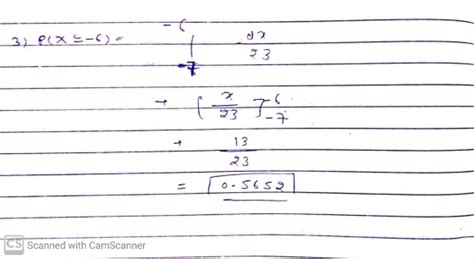 3) P(X ≤ -6) = ∫_{-7}^{-6} dx/23
→ [x/23]^{6}_{-7}
→ 13/23
= 0.5652
CS Scanned with CamScanner